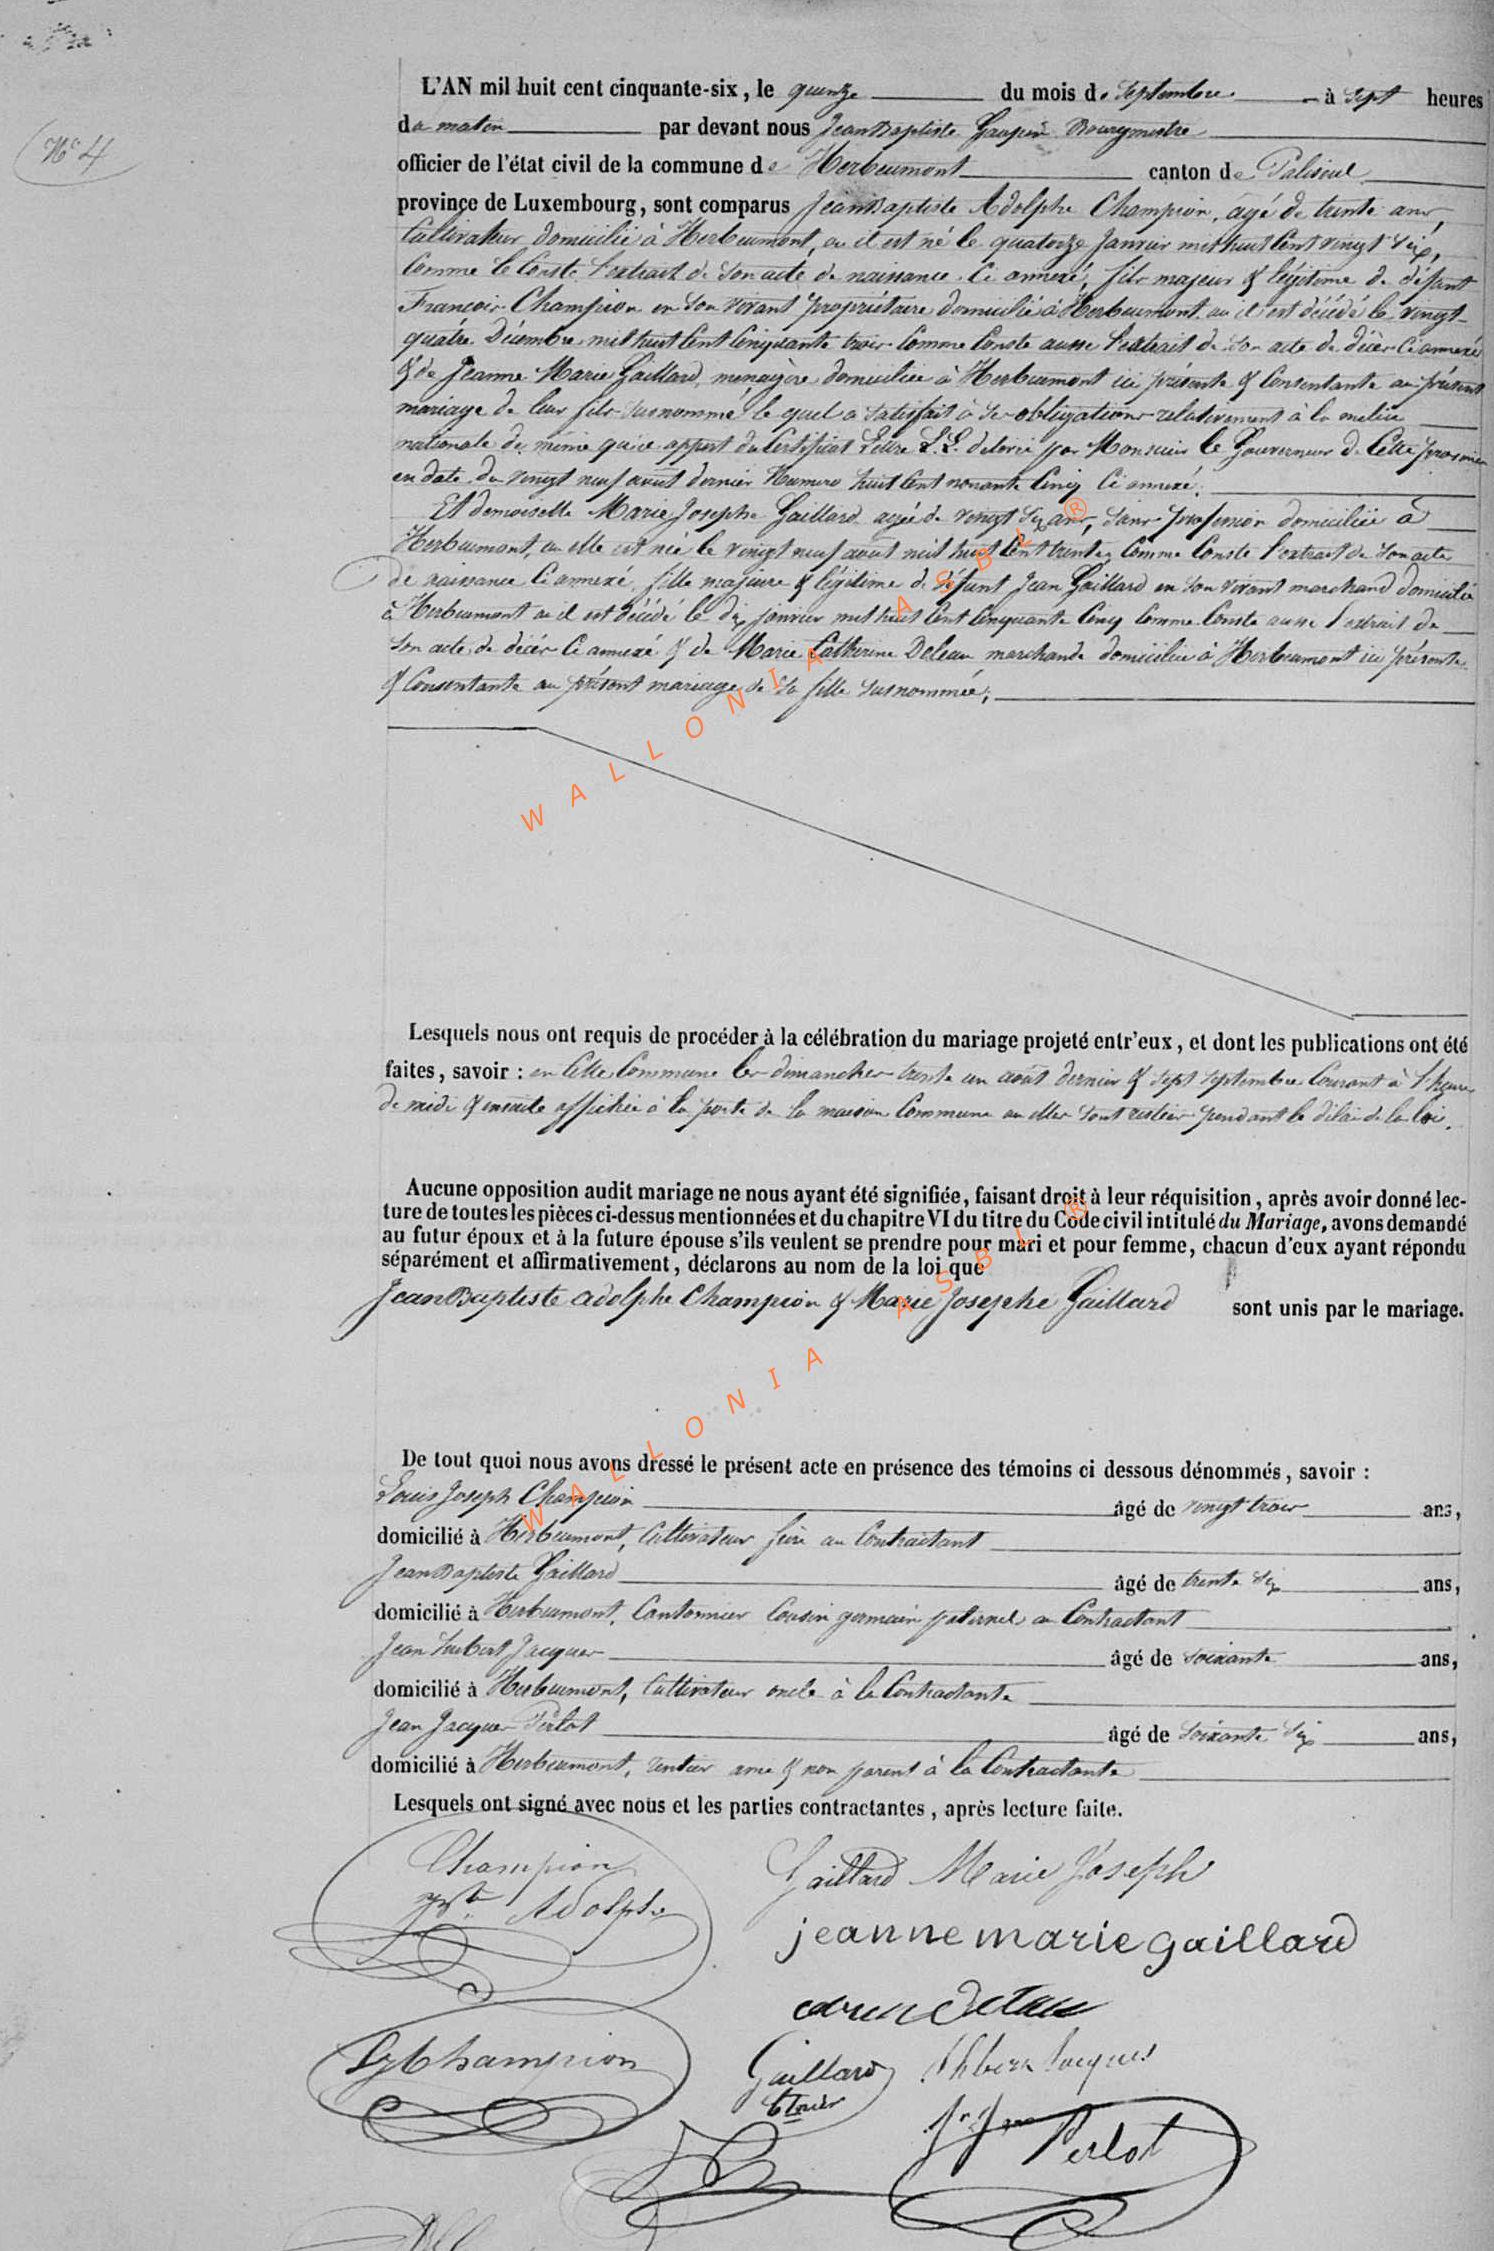 N° 4
L'AN mil huit cent cinquante-six, le quinze du mois de Septembre à Sept heures
du matin par devant nous Jean Baptiste Bourgmestre
officier de l'état civil de la commune de Herbeumont canton de Paliseul
province de Luxembourg, sont comparus Jean Baptiste Adolphe Champion, agé de trente ans,
Cultivateur domicilié à Herbeumont, ou il est né le quatorze Janvier mil huit Cent vingt Six,
Comme le Conste l'extrait de Son acte de naissance Ci annexé, fils majeur & légitime de défunt
François Champion en Son vivant propriétaire domicilié à Herbeumont ou il est décédé le vingt
quatre Décembre mil huit Cent Cinquante trois Comme Conste aussi l'extrait de Son acte de décès Ci annexé
& de Jeanne Marie Gaillard, menagère domiciliée à Herbeumont ici présente & Consentante au présent
mariage de leur fils Susnommé, le quel a Satisfait à Ses obligations relativement à la milice
nationale de même qu'il appert du Certificat Lettre L.L. délivré par Monsieur le Gouverneur de Cette province
en date du vingt neuf août dernier Numero huit Cent nonante Cinq Ci annexé.
Et demoiselle Marie Josephe Gaillard agée de vingt Six ans, Sans profession domiciliée à
Herbeumont, ou elle est née le vingt neuf août mil huit Cent trente, Comme Conste l'extrait de Son acte
de naissance Ci annexé, fille majeure & légitime de défunt Jean Gaillard en Son vivant marchand domicilié
à Herbeumont ou il est décédé le dix janvier mil huit Cent Cinquante Cinq Comme Conste aussi l'extrait de
Son acte de décès Ci annexé & de Marie Catherine Deleau marchande domiciliée à Herbeumont ici présente
& Consentante au présent mariage de Sa fille Susnommée;
Lesquels nous ont requis de procéder à la célébration du mariage projeté entr'eux, et dont les publications ont été
faites, savoir : en Cette Commune les dimanches trente un août dernier & Sept Septembre Courant à l'heure
de midi & ensuite affichée à la porte de la maison Commune ou elles Sont restées pendant le délai de la loi.
Aucune opposition audit mariage ne nous ayant été signifiée, faisant droit à leur réquisition, après avoir donné lec-
ture de toutes les pièces ci-dessus mentionnées et du chapitre VI du titre du Code civil intitulé du Mariage, avons demandé
au futur époux et à la future épouse s'ils veulent se prendre pour mari et pour femme, chacun d'eux ayant répondu
séparément et affirmativement, déclarons au nom de la loi que
Jean Baptiste adolphe Champion & Marie Josephe Gaillard sont unis par le mariage.
De tout quoi nous avons dressé le présent acte en présence des témoins ci dessous dénommés, savoir :
Louis Joseph Champion âgé de vingt trois ans,
domicilié à Herbeumont, Cultivateur frère au Contractant
Jean Baptiste Gaillard âgé de trente Six ans,
domicilié à Herbeumont, Cantonnier Cousin germain paternel au Contractant
Jean hubert Jacques âgé de Soixante ans,
domicilié à Herbeumont, Cultivateur oncle à la Contractante
Jean Jacques Perlot âgé de Soixante Six ans,
domicilié à Herbeumont, rentier ami & non parent à la Contractante
Lesquels ont signé avec nous et les parties contractantes, après lecture faite.
Champion
Adolphe
Gaillard Marie Joseph
jeanne marie gaillard
Champion
Gaillard
Jacques
Perlot
WALLONIA ASBL ®
WALLONIA ASBL ®